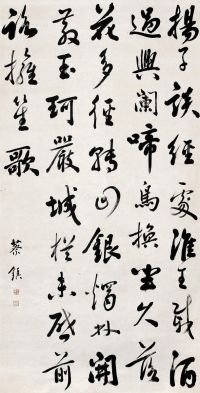 揚子談經處淮王載酒
過興闌啼鳥換坐久落
花多徑轉回銀燭林開
散玉珂嚴城時未啟前
路擁笙歌
蔡